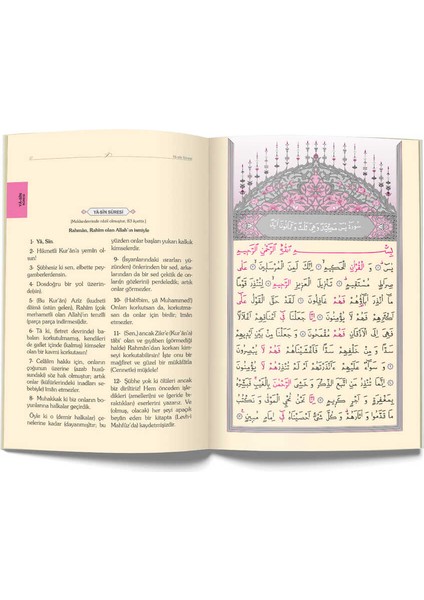 Yâ-sîn Sûresi
YÂ-SÎN
SÛRESİ
YÂ-SÎN SÛRESİ
Rahmân, Rahîm olan Allah'ın ismiyle
1- Yâ, Sîn.
2- Hikmetli Kur'ân'a yemîn ol-
sun!
3- Şübhesiz ki sen, elbette pey-
gamberlerdensin.
4- Dosdoğru bir yol üzerin-
desin!
5- (Bu Kur'ân) Azîz (kudreti
dâimâ üstün gelen), Rahîm (çok
merhametli olan) Allah'ın tenzîli
(parça parça indirmesi)dir.
6- Tâ ki, (fetret devrinde) ba-
baları korkutulmamış, kendileri
de gaflet içinde (kalmış) kimseler
olan bir kavmi korkutasın!
7- Celâlim hakkı için, onların
çoğunun üzerine (azab husû-
sundaki) söz hak olmuştur; artık
onlar (küfürlerindeki inadları se-
bebiyle) îmân etmezler.
8- Muhakkak ki biz onların bo-
yunlarına halkalar geçirdik.
Öyle ki o (demir halkalar) çe-
nelerine kadar (dayanmıştır, bu
yüzden onlar başları yukarı kalkık
kimselerdir.
9- (İsyanlarındaki ısrarları yü-
zünden) önlerinden bir sed, arka-
larından da bir sed çektik de on-
ların gözlerini) perdeledik; artık
onlar görmezler.
10- (Habîbim, yâ Muhammed!)
Onları korkutsan da onları kor-
kutmasan da onlar için birdir; îmân
etmezler.
11- (Sen,) ancak Zikr'e (Kur'ân'a)
tâbi' olan ve gayben (görmediği
hâlde) Rahmân'dan korkan kim-
seyi korkutabilirsin! İşte onu bir
mağfiret ve güzel bir mükâfâtla
(Cennetle) müjdele!
12- Şübhe yok ki ölüleri ancak
biz diriltiriz! Hem önceden işle-
dikleri (amelleri)ni ve (geride bı-
raktıkları) eserlerini yazarız. Ve
(olmuş, olacak) her şeyi apaçık
beyân eden bir kitapta (Levh-i
Mahfûz'da) kaydetmişizdir.
بِسْمِ اللّٰهِ الرَّحْمٰنِ الرَّحِيمِ
يٰسٓ ۝ وَالْقُرْاٰنِ الْحَكِيمِ ۝ اِنَّكَ لَمِنَ الْمُرْسَلِينَ ۝ عَلٰى
صِرَاطٍ مُسْتَقِيمٍ ۝ تَنْزِيلَ الْعَزِيزِ الرَّحِيمِ ۝ لِتُنْذِرَ قَوْمًا
مَا اُنْذِرَ اٰبَاؤُهُمْ فَهُمْ غَافِلُونَ ۝ لَقَدْ حَقَّ الْقَوْلُ عَلٰى
اَكْثَرِهِمْ فَهُمْ لَا يُؤْمِنُونَ ۝ اِنَّا جَعَلْنَا فِى اَعْنَاقِهِمْ اَغْلَالًا
فَهِىَ اِلَى الْاَذْقَانِ فَهُمْ مُقْمَحُونَ ۝ وَجَعَلْنَا مِنْ بَيْنِ اَيْدِيهِمْ
سَدًّا وَمِنْ خَلْفِهِمْ سَدًّا فَاَغْشَيْنَاهُمْ فَهُمْ لَا يُبْصِرُونَ
وَسَوَاءٌ عَلَيْهِمْ ءَاَنْذَرْتَهُمْ اَمْ لَمْ تُنْذِرْهُمْ لَا يُؤْمِنُونَ
اِنَّمَا تُنْذِرُ مَنِ اتَّبَعَ الذِّكْرَ وَخَشِىَ الرَّحْمٰنَ بِالْغَيْبِ فَبَشِّرْهُ
بِمَغْفِرَةٍ وَاَجْرٍ كَرِيمٍ ۝ اِنَّا نَحْنُ نُحْىِ الْمَوْتٰى وَنَكْتُبُ
مَا قَدَّمُوا وَاٰثَارَهُمْ وَكُلَّ شَىْءٍ اَحْصَيْنَاهُ فِى اِمَامٍ مُبِينٍ